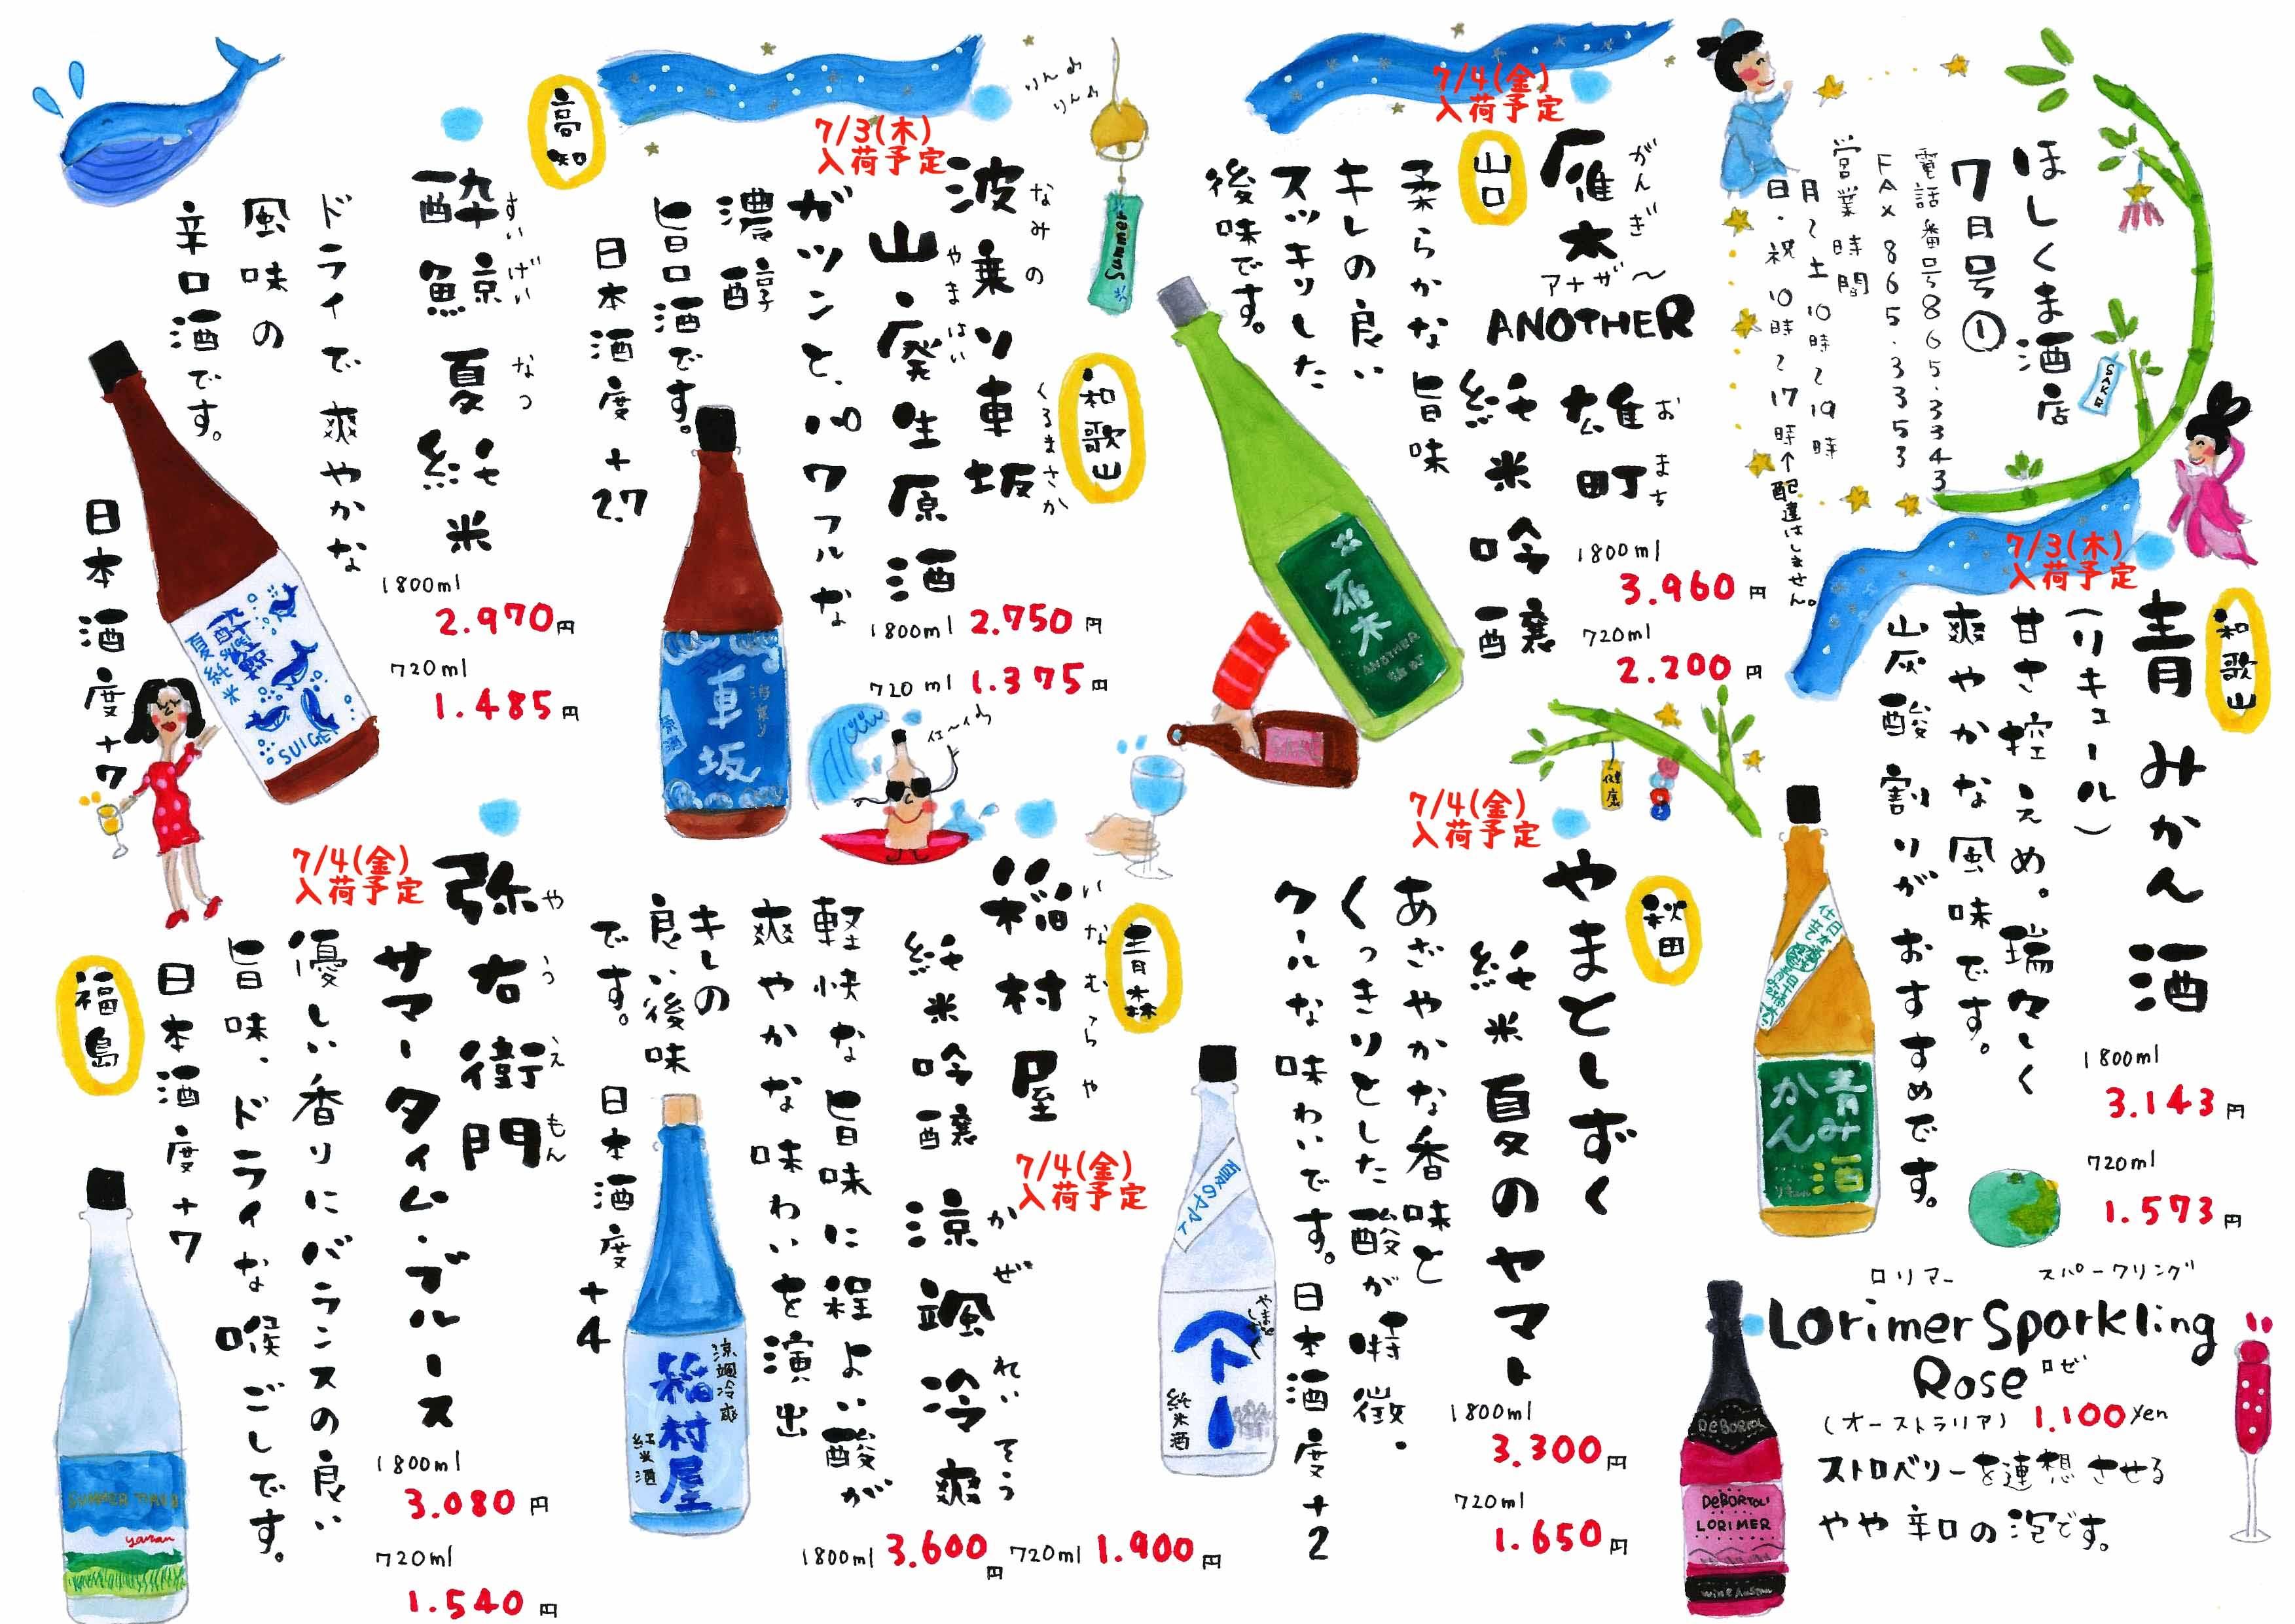 ほしくま酒店
7月号①
電話番号865.3343
FAX 865.3353
営業時間
月〜土 10時〜19時
日・祝 10時〜17時←配達はしません。
7/3(木)
入荷予定
和歌山
青みかん酒
(リキュール)
甘さ控えめ。瑞々しく
爽やかな風味です。
炭酸割りがおすすめです。
1800ml
3.143円
720ml
1.573円
日本酒仕立て
青みかん酒
ロリマー
スパークリング
Lorimer Sparkling
Rose
ロゼ
(オーストラリア) 1.100yen
ストロベリーを連想させる
やや辛口の泡です。
DeBORTOLI
DeBORTOLI
LORIMER
SAKE
7/4(金)
入荷予定
山口
がんぎ
雁木
アナザ〜
ANOTHER
おまち
雄町
純米吟醸
柔らかな旨味
キレの良い
スッキリした
後味です。
1800ml
3.960円
720ml
2.200円
雁木
ANOTHER
雄町
健康
7/4(金)
入荷予定
秋田
やまとしずく
純米 夏のヤマト
あざやかな香味と
くっきりとした酸が特徴。
クールな味わいです。日本酒度+2
1800ml
3.300円
720ml
1.650円
夏のヤマト
やまとしずく
純米酒
りんりん
Summer
7/3(木)
入荷予定
和歌山
なみの
くるまさか
波乗り車坂
やまはい
山廃生原酒
ガツンと、パワフルな
濃醇
旨口酒です。
日本酒度+2.7
1800ml 2.750円
720ml 1.375円
波乗り
車坂
原酒
イェーイ
青森
いなむらや
稲村屋
純米吟醸
かぜれいそう
涼颯冷爽
7/4(金)
入荷予定
軽快な旨味に程よい酸が
爽やかな味わいを演出
キレの
良い後味
です。
日本酒度+4
1800ml 3.600円 720ml 1.900円
涼颯冷爽
稲村屋
純米酒
高知
すいげい
なつ
酔鯨 夏純米
ドライで爽やかな
風味の
辛口酒です。
日本酒度+7
1800ml
2.970円
720ml
1.485円
酔鯨
夏純米
SUIGEI
7/4(金)
入荷予定
福島
やうえもん
弥右衛門
サマータイム・ブルース
優しい香りにバランスの良い
旨味、ドライな喉ごしです。
日本酒度+7
1800ml
3.080円
720ml
1.540円
SUMMER TIME